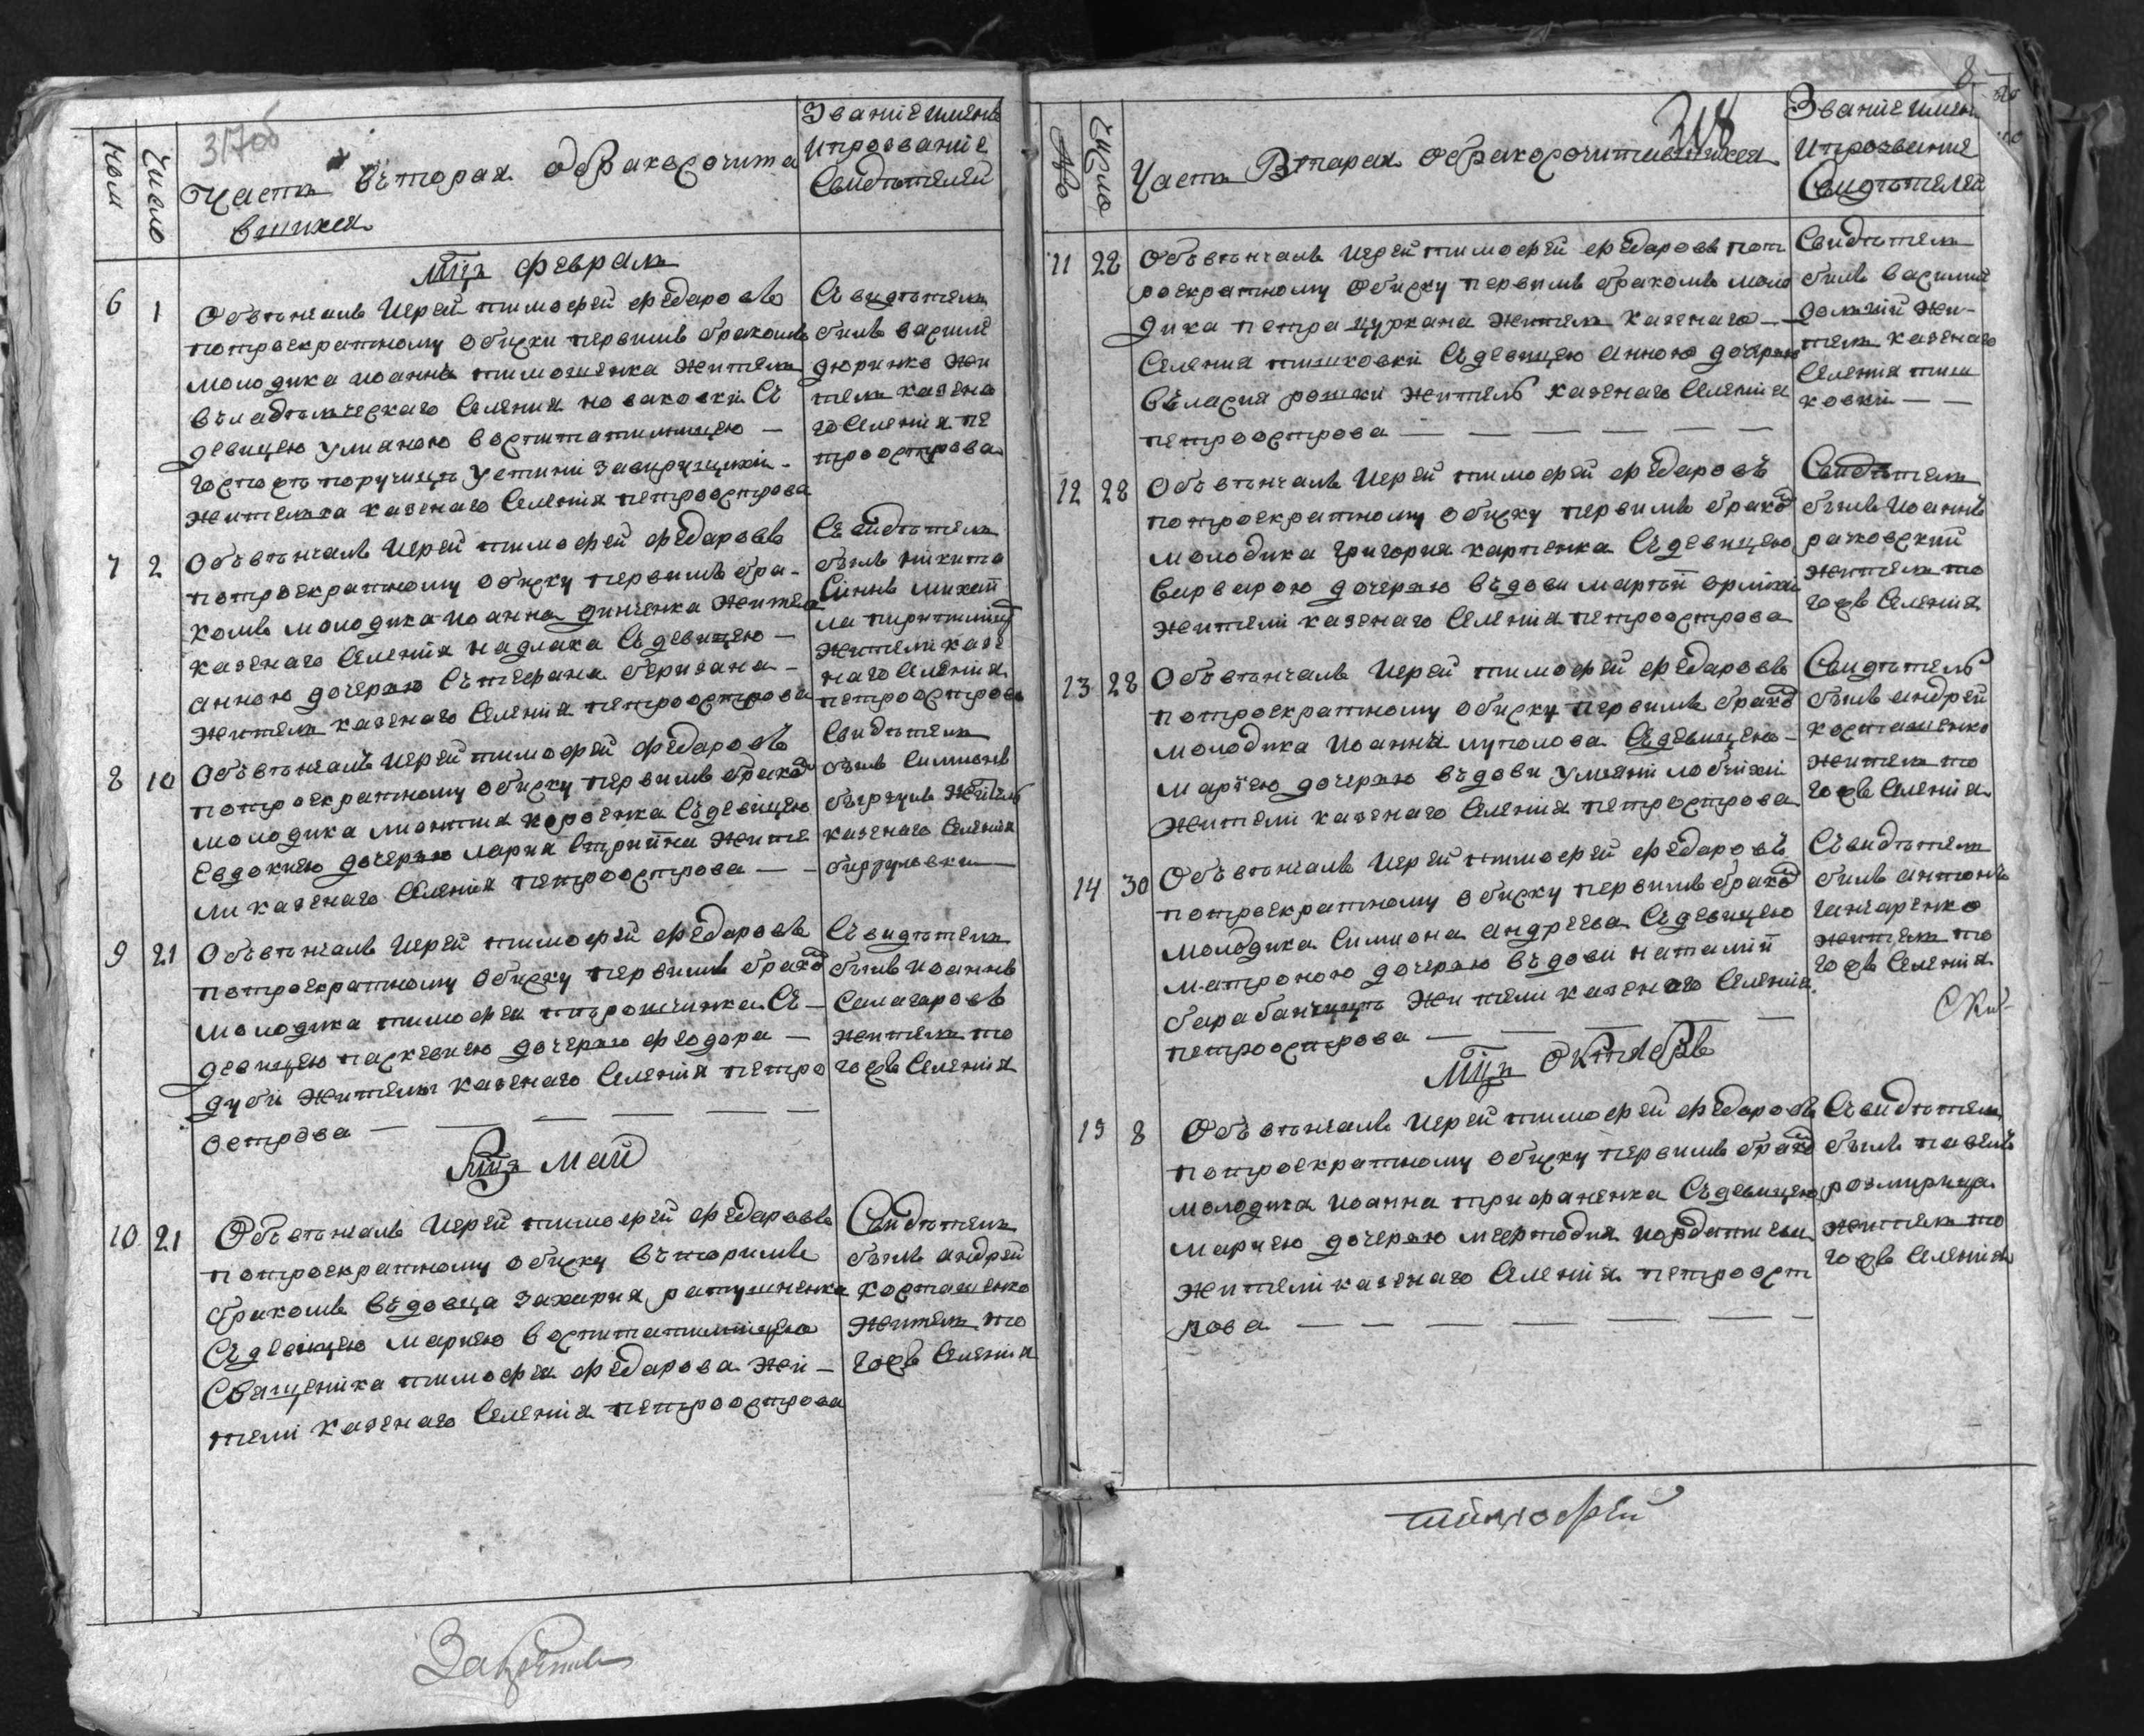 317об
Нѡм
Число
Часть вѣторая обракосочита
вшихся
Званіе имень
ипрозваніе
Свидѣтелей
Мцъ февраль
6 1
Обвѣнчалъ Иерей тимофей федаровъ
потроекратному обиску первимъ бракомъ
молодика иоанна тимошенка жителя
вѣладѣлческаго Селения новаковки Съ
девицею улияною воспитателницею —
госпожѣ поручицѣ устині
жителька казенаго Селенія петроострова
Свидѣтель
билъ васили
дюринко жи
тель казена
го Селенія пе
троострова
7 2
Объвѣнчалъ Иерей тимофей федаровъ
потроекратному обиску первимъ бра-
комъ молодика иоанна динченка жителя
казенаго Селенія надлака Съ девицею —
анною дочерью Сътефана беризана —
жителя казенаго Селенія петроострова
Съвидѣтель
былъ никита
Синнъ михай
ла
жители казе
наго Селенія
петроострова
8 10
Объвѣнчалъ Иерей тимофей федаровъ
потроекратному обиску первимъ брако
молодика леонтия короенка Съдевицею
Евдокиею дочерью лария жите
ли казенаго Селенія петроострова — —
Свидѣтель
былъ Симионъ
бырзулъ житель
казенаго Селенія
бирзуловки
9 21
Объвѣнчалъ Иерей тимофей федаровъ
потроекратному обиску первимъ брако
молодика тимофея Съ —
девицею паскевиею дочерью феодора —
дуби жители казенаго Селенія петро
острова — — — — —
Съвидѣтель
былъ иоаннъ
Самагаровъ
житель то
гожъ Селенія
Мцъ Май
10 21
Объвѣнчалъ Иерей тимофей федаровъ
потроекратному обиску вѣторимъ
бракомъ вѣдовца захария ратушненка
Съдевицею мариею воспитателницею
Священика тимофея федарова жи —
тели казенаго Селенія петроострова
Свидѣтель
былъ андрей
косташенко
житель то
гожъ Селенія
318
8
№
Число
Часть Втарая обракосочитавшихся
Званіе имень
ипрозвания
Свидѣтелей
11 22
Объвѣнчалъ Иерей тимофей федаровъ пот
роекратному обиску первимъ бракомъ моло
дика петра цуркана жителя казенаго —
Селения тишковки Съдевицею анною дочерью
вѣласия рошки житель казенаго Селенія
петроострова — — — — — —
Свидѣтель
билъ василий
жи-
тель казенаго
Селенія тиш
ковки — —
12 28
Объвѣнчалъ Иерей тимофей федаровъ
потроекратному обиску первимъ брако
молодика григория карпенка Съдевицею
варварою дочерью вѣдови марфи
жители казенаго Селенія петроострова
Свидѣтель
былъ иоаннъ
рачковский
житель то
гожъ Селенія
13 28
Объвѣнчалъ Иерей тимофей федаровъ
потроекратному обиску первимъ брако
молодика иоанна луполова Съдевицею —
марѳею дочерью вѣдови улияни
жители казенаго Селенія петроострова
Свидѣтель
былъ андрей
косташенко
житель то
гожъ Селенія
14 30
Объвѣнчалъ Иерей тимофей федаровъ
потроекратному обиску первимъ брако
молодика Симиона андреева Съдевицею
матроною дочерью вѣдови наталий
жители казенаго Селенія
петроострова — — — — —
Съвидѣтель
билъ антонъ
ганчаренко
житель то
гожъ Селенія
Мцъ Октябръ
15 8
Объвѣнчалъ Иерей тимофей федаровъ
потроекратному обиску первимъ брако
молодика иоанна трифаненка Съдевицею
мариею дочерью мефтодия
жители казенаго Селенія петроост
рова — — — — — — —
Съвидѣтель
былъ павелъ
розмирица
житель то
гожъ Селенія
тимофей